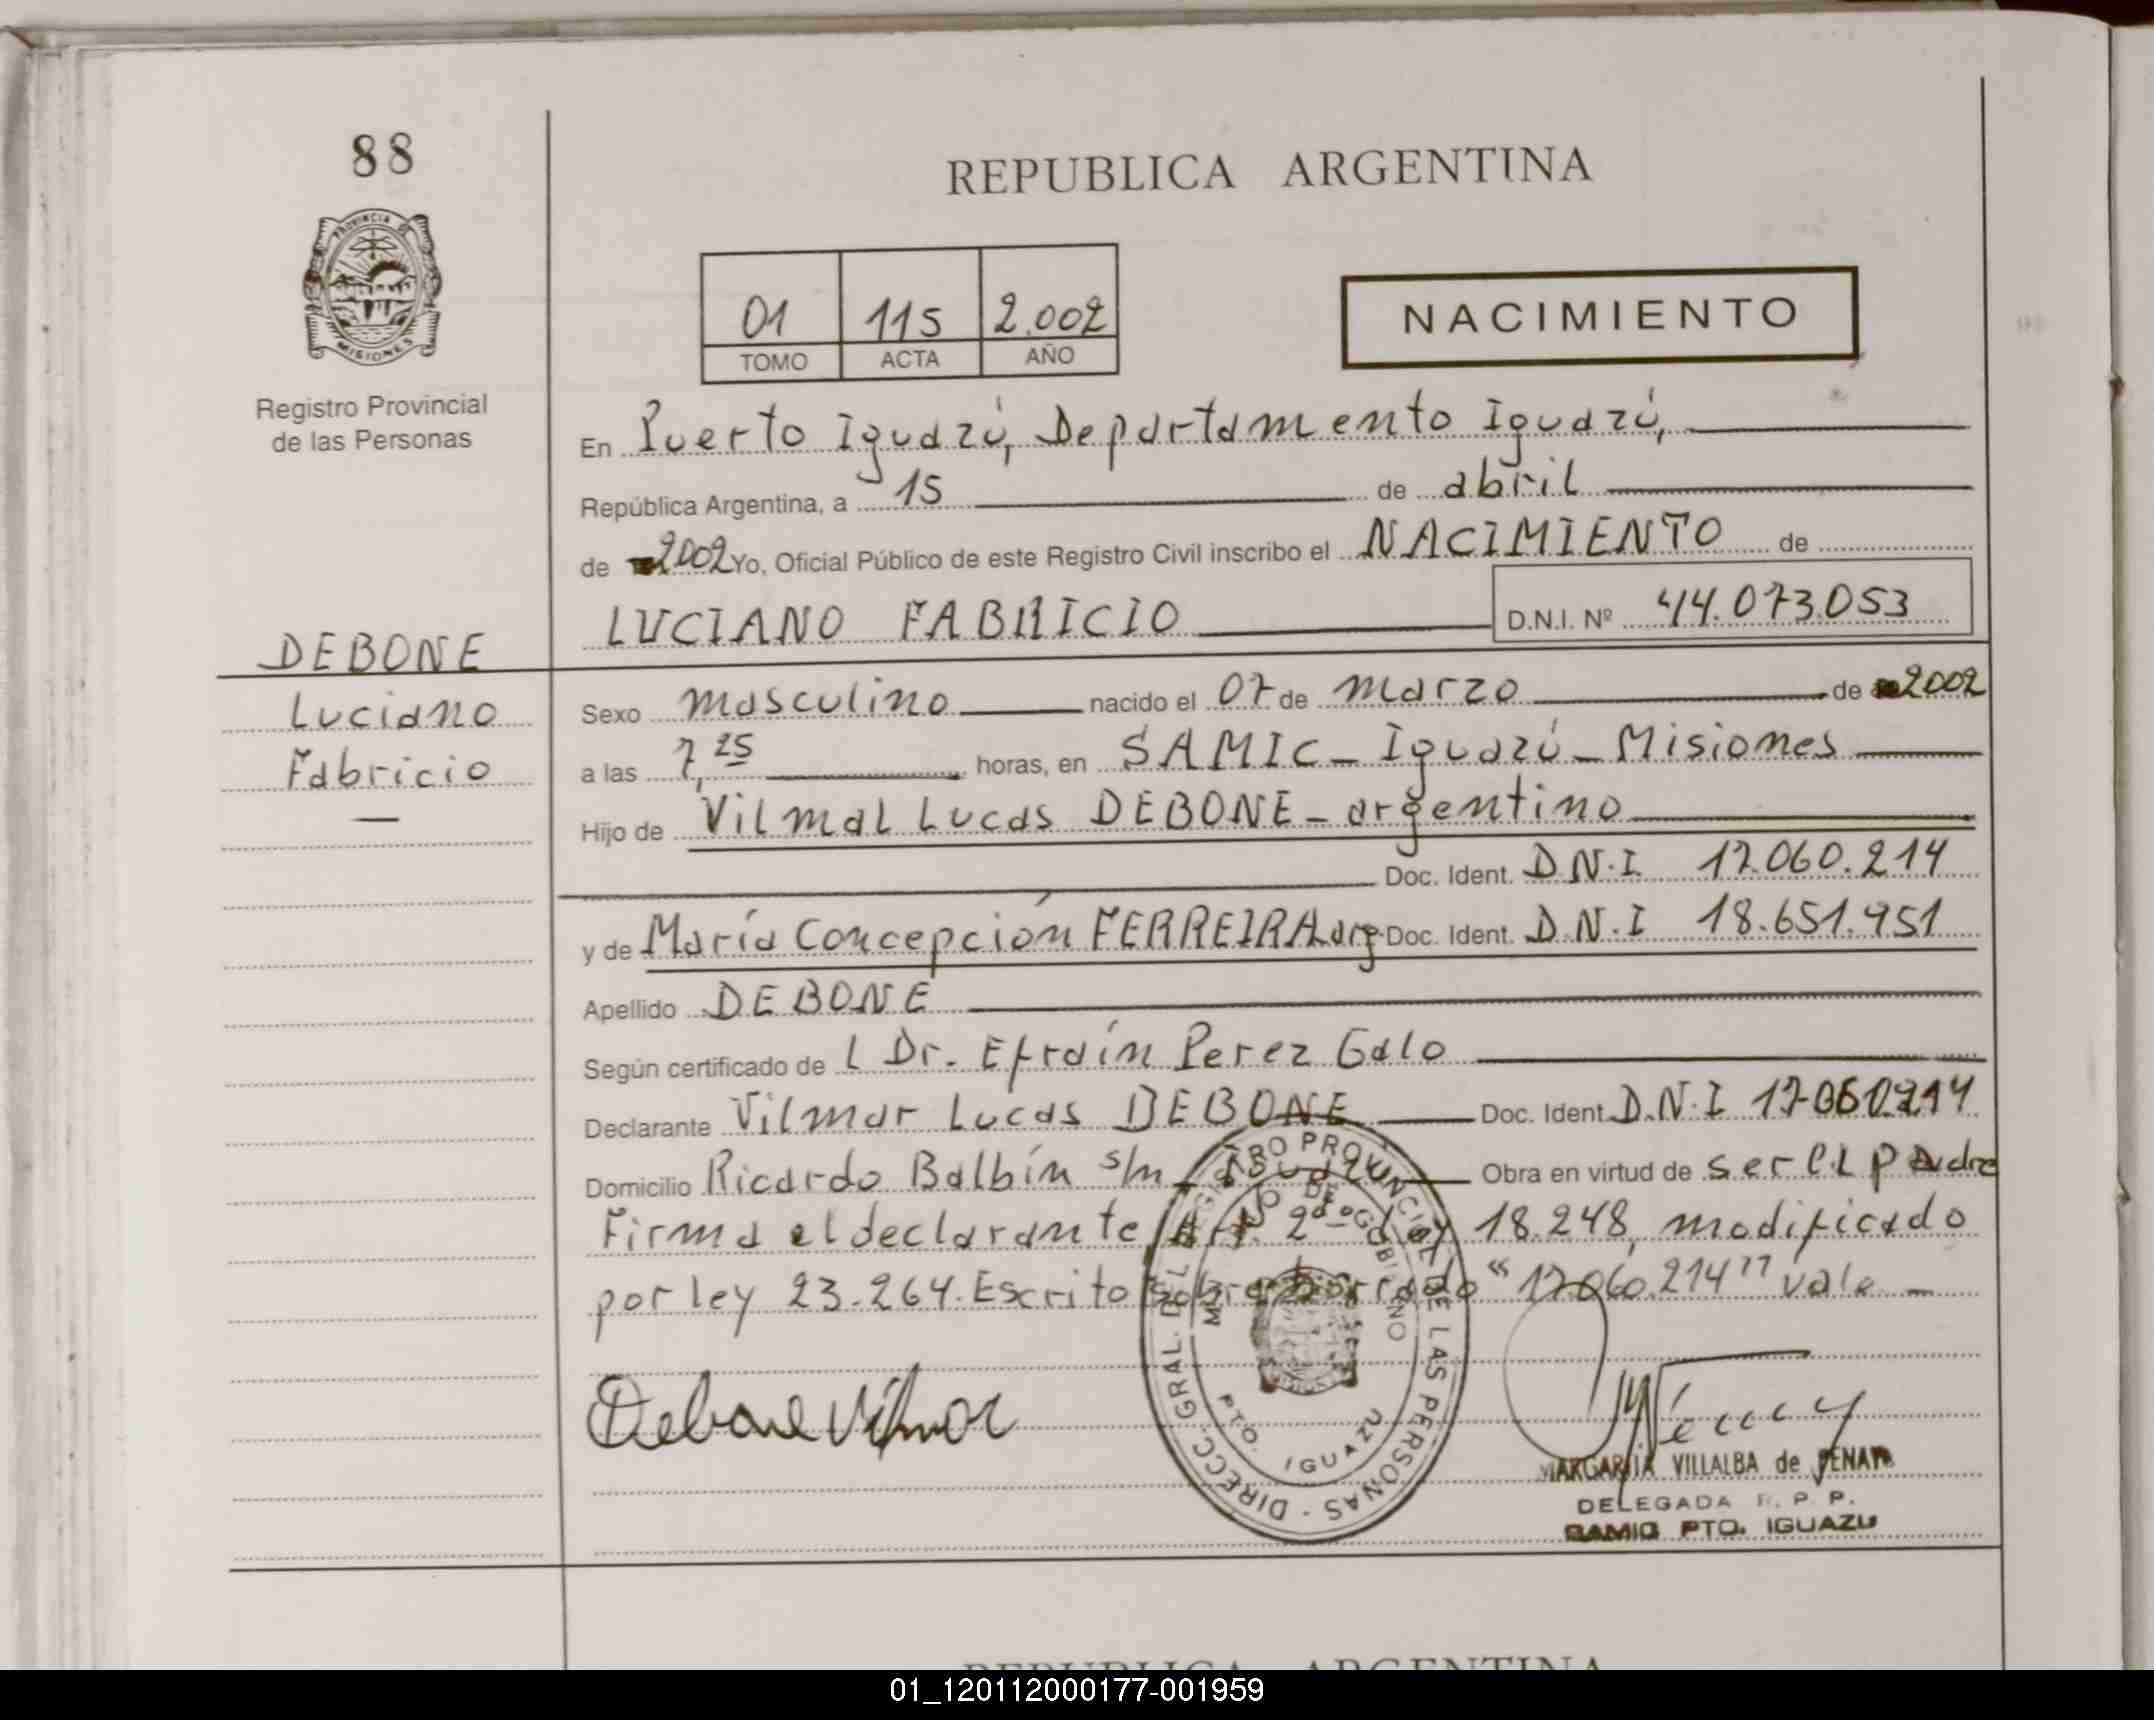 88
PROVINCIA DE
MISIONES
Registro Provincial
de las Personas
DEBONE
Luciano
Fabricio
—
REPUBLICA ARGENTINA
01 115 2.002
TOMO ACTA AÑO
NACIMIENTO
En Puerto Iguazú, Departamento Iguazú,
República Argentina, a 15 de abril
de 2002 Yo, Oficial Público de este Registro Civil inscribo el NACIMIENTO de
LUCIANO FABRICIO D.N.I. Nº 44.073.053
Sexo masculino nacido el 07 de marzo de 2002
a las 7,25 horas, en SAMIC - Iguazú - Misiones
Hijo de Vilmal Lucas DEBONE - argentino
Doc. Ident. D.N.I 17.060.214
y de María Concepción FERREIRA arg. Doc. Ident. D.N.I 18.651.951
Apellido DEBONE
Según certificado de l Dr. Efraín Perez Galo
Declarante Vilmar Lucas DEBONE Doc. Ident. D.N.I 17.060.214
Domicilio Ricardo Balbín s/n - Iguazú Obra en virtud de ser el padre
Firma el declarante, Art. 2do ley 18.248, modificado
por ley 23.264. Escrito sobreborrado "17.060.214" vale -
Debone Vilmar
DIRECC. GRAL. DEL REGISTRO PROVINCIAL DE LAS PERSONAS
PTO. IGUAZU
MARGARITA VILLALBA de
DELEGADA R. P. P.
SAMIC PTO. IGUAZU
REPUBLICA ARGENTINA
01_120112000177-001959